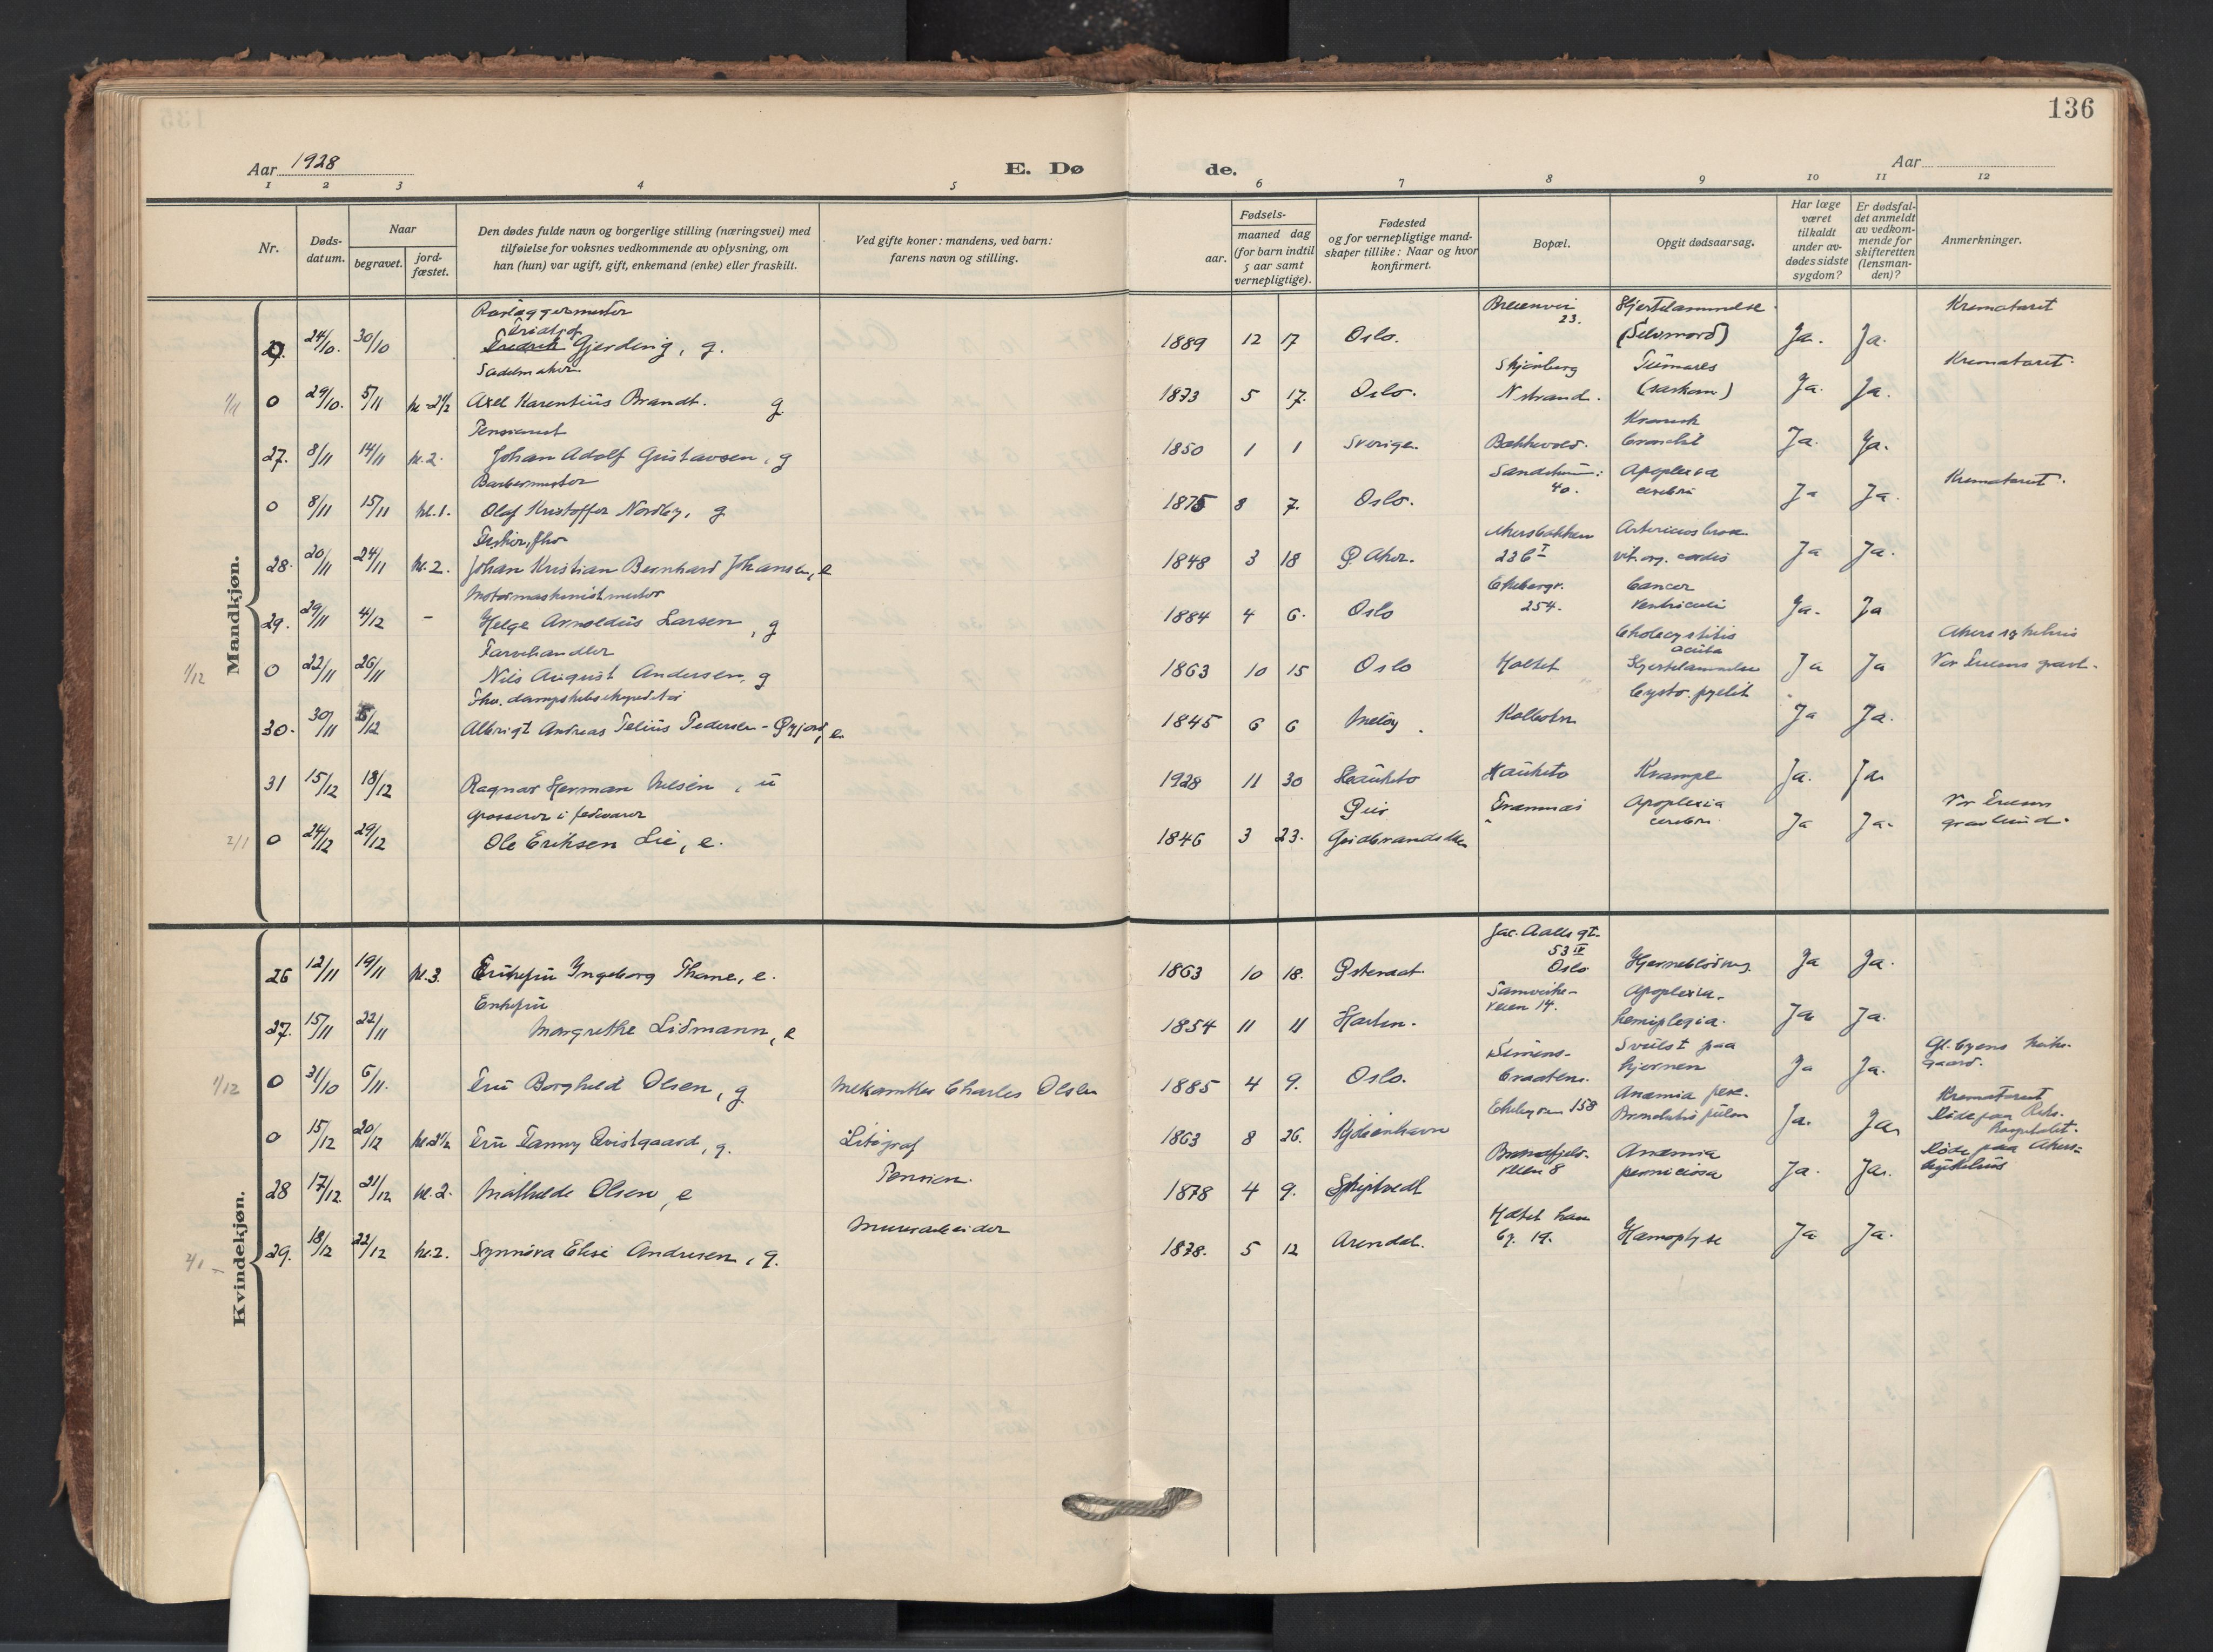 136
Aar 1928
E. Dø
de.
Aar
1 2 3 4 5 6 7 8 9 10 11 12
Nr.
Døds-
datum.
Naar
begravet.
jord-
fæstet.
Den dødes fulde navn og borgerlige stilling (næringsvei) med
tilføielse for voksnes vedkommende av oplysning, om
han (hun) var ugift, gift, enkemand (enke) eller fraskilt.
Ved gifte koner: mandens, ved barn:
farens navn og stilling.
Fødsels-
aar.
maaned dag
(for barn indtil
5 aar samt
vernepligtige).
Fødested
og for vernepligtige mand-
skaper tillike: Naar og hvor
konfirmert.
Bopæl.
Opgit dødsaarsag.
Har læge
været
tilkaldt
under av-
dødes sidste
sygdom?
Er dødsfal-
det anmeldt
av vedkom-
mende for
skifteretten
(lensman-
den)?
Anmerkninger.
Mandkjøn.
Rørlæggermester Hjertelammelse Krematoriet
24/10. 30/10 Gjerding, g. 1889 12 17 Oslo. 23. (Selvmord) Ja. Ja.
Sadelmaker Krematoriet
1/11 0 29/10. 5/11 kl. 2 1/2 Axel Karentius Brandt. g 1873 5 17. Oslo. Nstrand. (sarkom) Ja. Ja.
Pensionist Kronisk
27. 8/11 14/11 kl. 2. Johan Adolf Gustavsen, g 1850 1 1 Sverige. Bækkevold. bronchit Ja. Ja.
Barbermester Apoplexia Krematoriet.
0 8/11 15/11 kl. 1. Olaf Kristoffer Nordby, g 1875 8 7. Oslo. 40. cerebri Ja Ja.
Akersbakken
28. 20/11 24/11 kl. 2. Johan Kristian Bernhard Johansen, e 1848 3 18 Ø. Aker. 23 b I vit. org. cordis Ja Ja.
Motormaskinistmester Ekebergv. Cancer
29. 29/11 4/12 - Helge Arnoldus Larsen, g 1884 4 6. Oslo 254. ventriculi Ja. Ja
Farvehandler Cholecystitis acuta Akers sykehus
1/12 0 22/11 26/11 Nils August Andersen, g 1863 10 15 Oslo Holtet Hjertelammelse Ja Ja Vor Frelsers gravl.
Fhv. dampskibsekspeditør Cysto-pyelit
30. 30/11 5/12 Albrigt Andreas Pedersen - e 1845 6 6 Meløy. Kolbotn Ja Ja.
31 15/12 18/12 Ragnar Herman Nilsen, u 1928 11 30 Hauketo Hauketo Krampe Ja. Ja.
Grosserer i fedevarer Apoplexia Vor Frelsers
2/1 0 24/12 29/12 Ole Eriksen Lie, e. 1846 3 23. Gudbrandsdalen cerebri Ja Ja. gravlund.
Kvindekjøn.
Jac. Aalls gt.
53 IV
26 12/11 19/11 kl. 3. Enkefru Ingeborg Thane, e. 1863 10 18. Oslo Hjerneblødning Ja Ja.
Enkefru Samvirke- Apoplexia.
27. 15/11 22/11 Margrethe Lidmann, e 1854 11 11 veien 14. hemiplegia. Ja Ja.
Simens- Svulst paa Gl. byens kirke-
1/12 0 31/10 6/11. Fru Borghild Olsen, g Mekaniker Charles Olsen 1885 4 9. Oslo. braaten. hjernen Ja Ja. gaard.
Anæmia Krematoriet
0 15/12 20/12 Fru Fanny Qvistgaard, g. Litograf 1863 8 26. Kjøbenhavn 158 Ja. Ja. Døde paa Riks-
hospitalet.
Pension. Anæmia Døde paa Akers-
28 17/12. 21/12 kl. 2. Mathilde Olsen, e 1878 4 9. Skiptvedt veien 8 perniciosa Ja. Ja. sykehus
Murerarbeider
2/1 29. 18/12 22/12 kl. 2. Synnøva Elise Andresen, g. 1878. 5 12 Arendal. 19. Hæmoptyse Ja Ja.